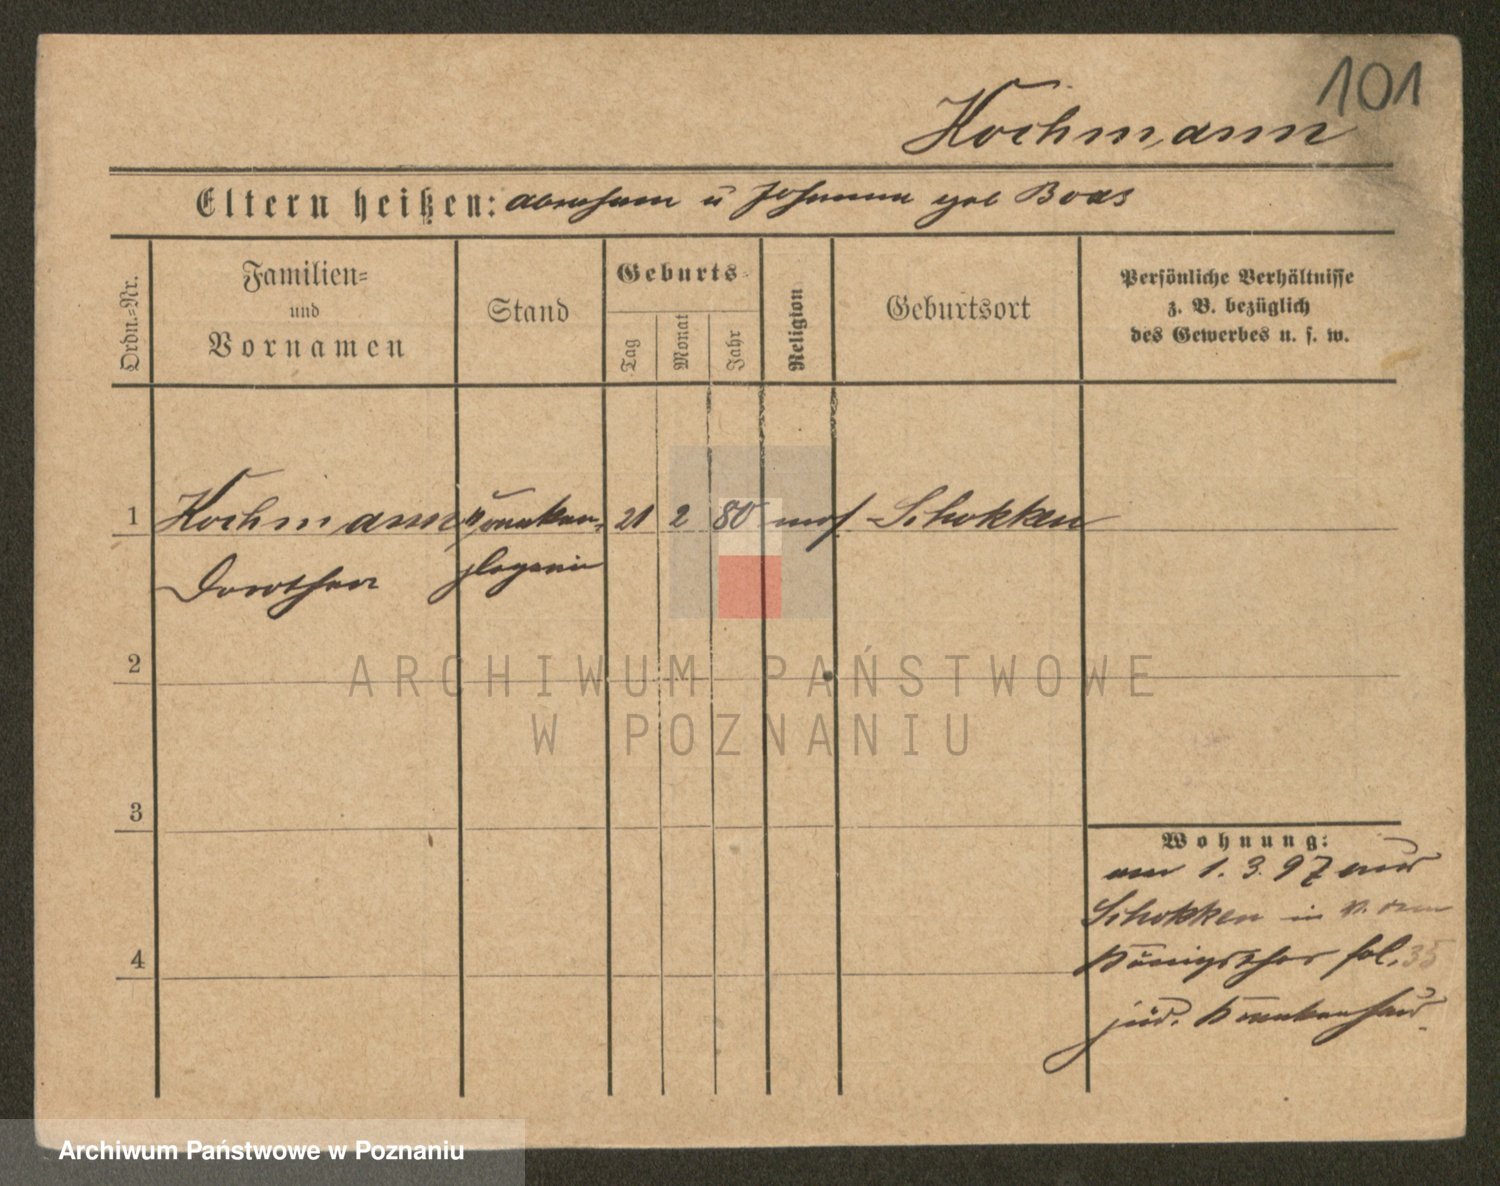 101
Kochmann
Eltern heißen: Abraham u Johanna geb Boas
Ordn.=Nr.
Familien=
und
Vornamen
Stand
Geburts=
Tag
Monat
Jahr
Religion
Geburtsort
Persönliche Verhältnisse
z. B. bezüglich
des Gewerbes u. s. w.
1 Kochmann Kranken- 21 2 80 mos. Schokken
Dorothea pflegerin
2
3
4
Wohnung:
am 1. 3. 97 aus
Schokken in v. dem
Königsthor fol. 35
jüd. Krankenhaus
ARCHIWUM PAŃSTWOWE
W POZNANIU
Archiwum Państwowe w Poznaniu